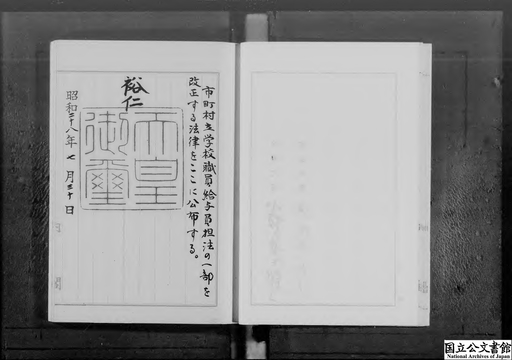 市町村立学校職員給与負担法の一部を
改正する法律をここに公布する。
裕仁
天皇
御璽
昭和二十八年七月三十日
国立公文書館
National Archives of Japan